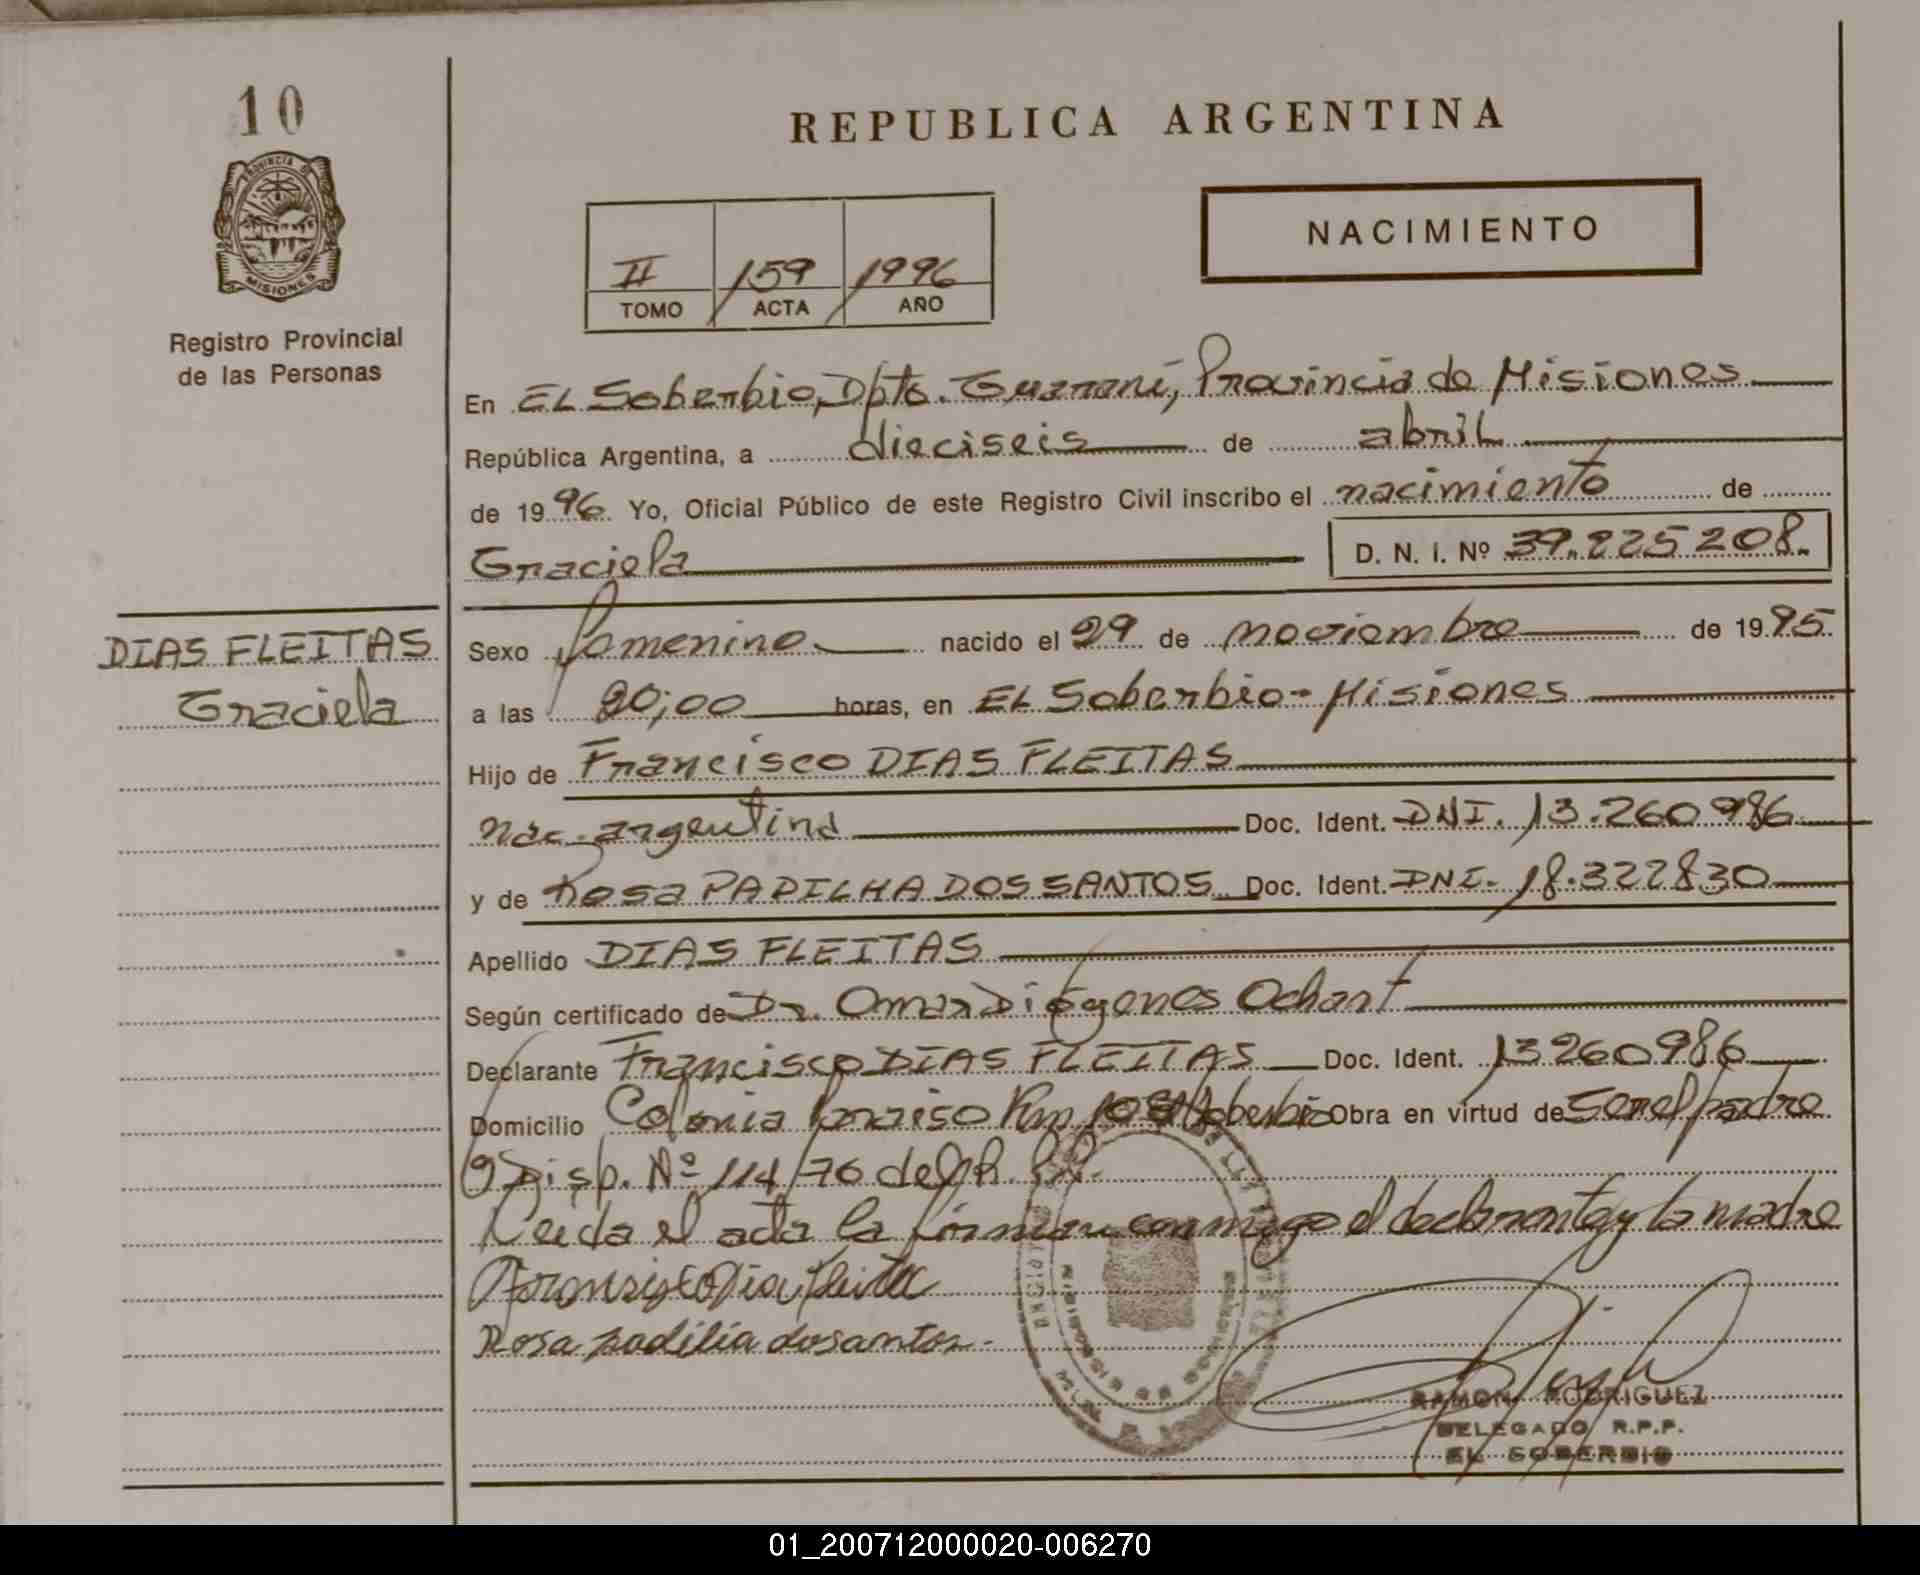 10
PROVINCIA DE
MISIONES
Registro Provincial
de las Personas
REPUBLICA ARGENTINA
II 159 1996
TOMO ACTA AÑO
NACIMIENTO
En EL Soberbio, Dpto. Guaraní, Provincia de Misiones
República Argentina, a dieciseis de abril
de 1996. Yo, Oficial Público de este Registro Civil inscribo el nacimiento de
Graciela D. N. I. Nº 39.225208.
DIAS FLEITAS
Graciela
Sexo femenino nacido el 29 de noviembre de 1995.
a las 20;00 horas, en EL Soberbio-Misiones
Hijo de Francisco DIAS FLEITAS
nac. argentina Doc. Ident. DNI. 13.260986
y de Rosa PADILHA DOS SANTOS Doc. Ident. DNI. 18.322830
Apellido DIAS FLEITAS
Según certificado de Dr. Omar Diógenes Ochart
Declarante Francisco DIAS FLEITAS Doc. Ident. 13260986
Domicilio Colonia Paraiso Km 10 El Soberbio Obra en virtud de ser el padre
Disp. Nº 114/76 del
Leida el acta la firman conmigo el declarante y la madre
Rosa padilia dosantos.
RAMON RODRIGUEZ
DELEGADO R.P.P.
EL SOBERBIO
01_200712000020-006270